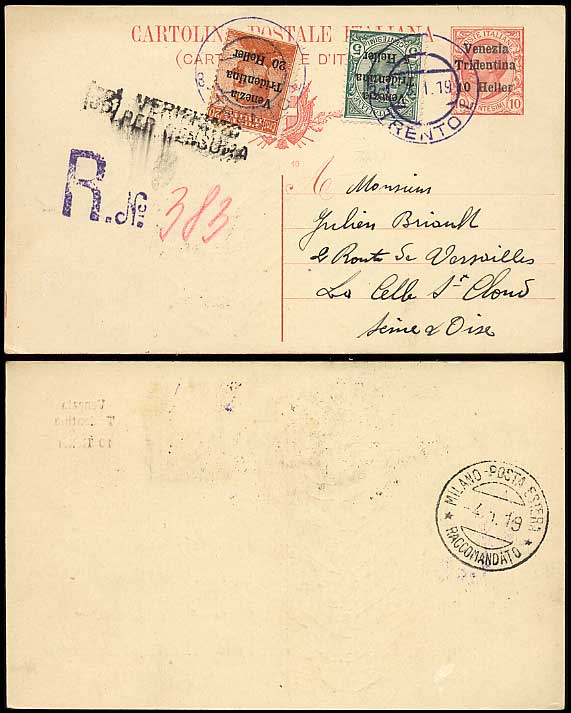 CARTOLINA POSTALE ITALIANA
(CARTE POSTALE D'IT
POSTE ITALIANE
Venezia
Tridentina
10 Heller
CENTESIMI 10
Venezia
Tridentina
20 Heller
Venezia
Tridentina
5 Heller
1.19
TRENTO
VERIFICATO
PER CENSURA
R. No
383
19
M Monsieur
Julien Briault
2 Route de Versailles
La Celle St Cloud
Seine & Oise
Venezia
10 Heller
MILANO-POSTA ESTERA
4.1.19
RACCOMANDATO